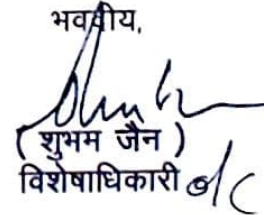 भवदीय,
( शुभम जैन )
विशेषाधिकारी o/c